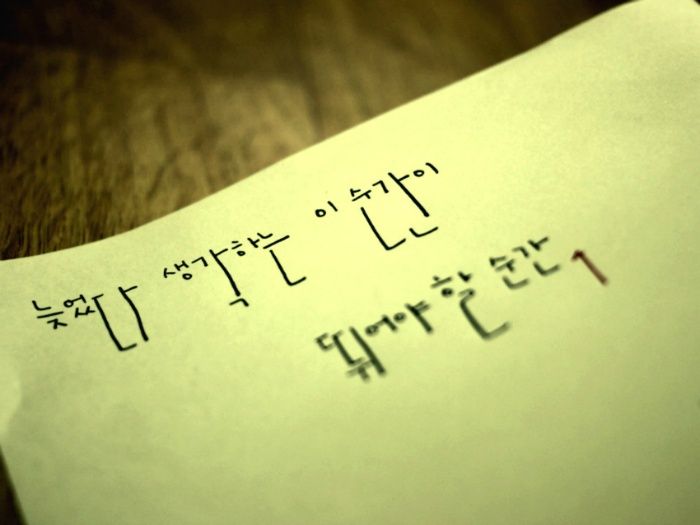 늦었다 생각하는 이 순간이
뛰어야 할 순간